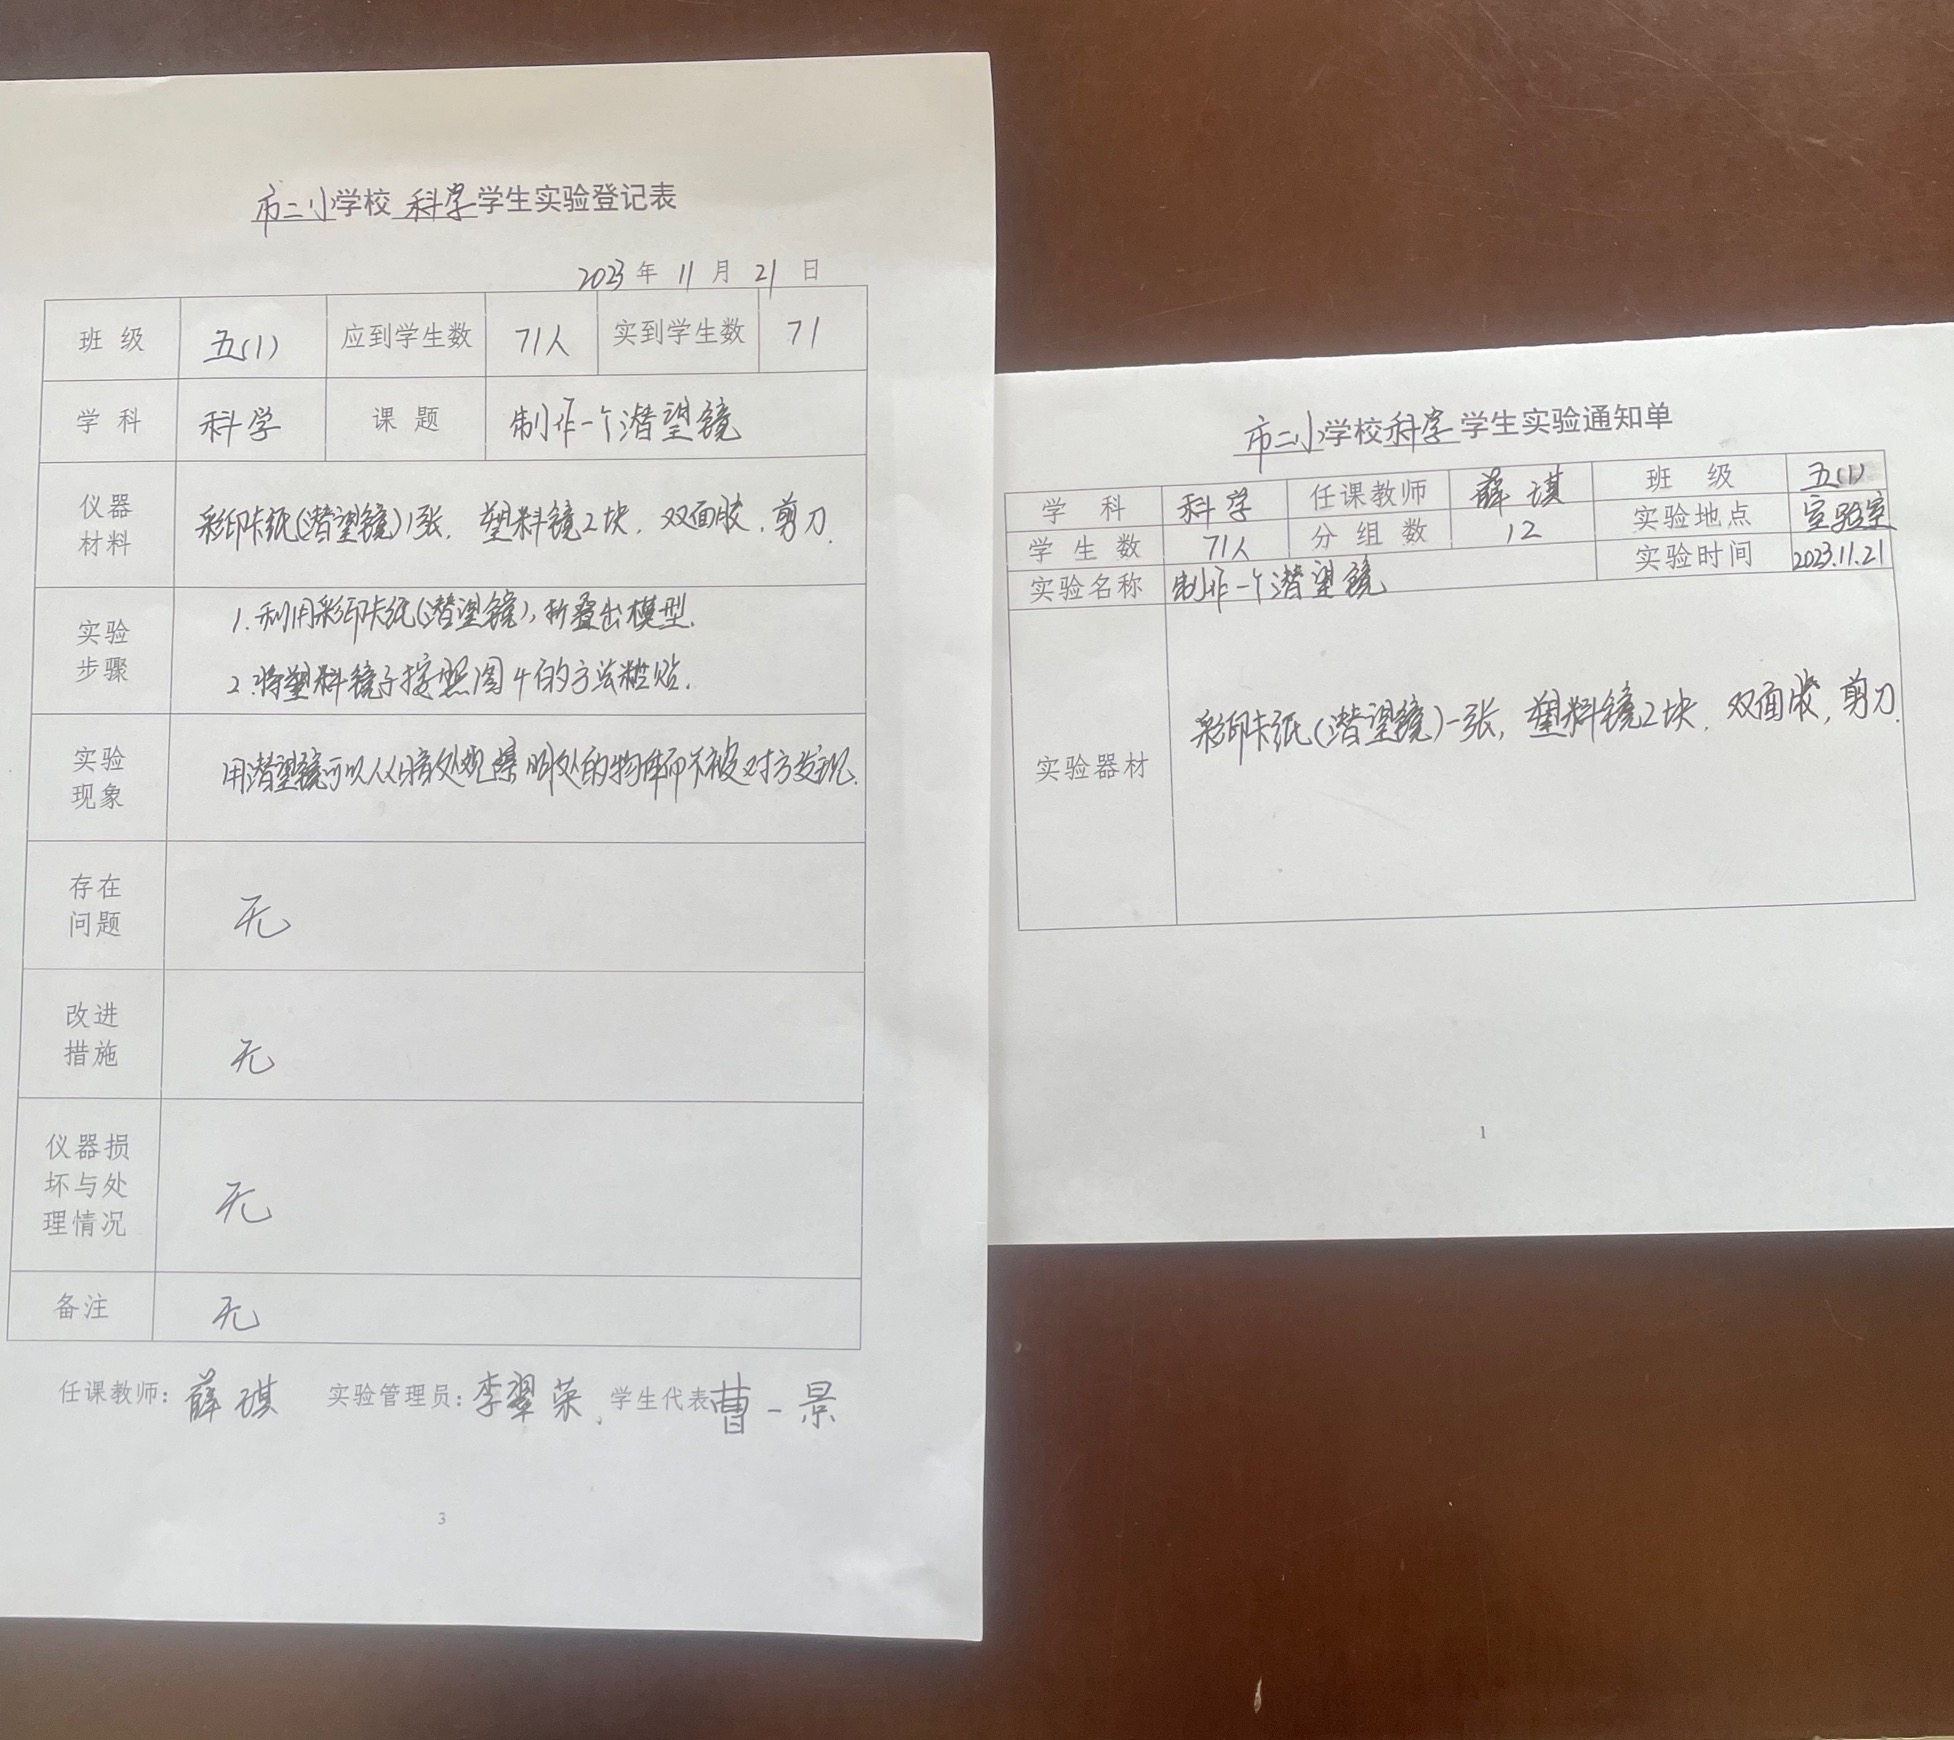 市二小学校 科学 学生实验登记表
2023 年 11 月 21 日
班 级 五(1) 应到学生数 71人 实到学生数 71
学 科 科学 课 题 制作一个潜望镜
仪器
材料
彩印卡纸(潜望镜)1张, 塑料镜2块, 双面胶, 剪刀.
实验
步骤
1. 利用彩印卡纸(潜望镜), 折叠出模型.
2. 将塑料镜子按照图4的方法粘贴.
实验
现象
用潜望镜可以从暗处观察明处的物体而不被对方发现.
存在
问题
无
改进
措施
无
仪器损
坏与处
理情况
无
备注 无
任课教师: 薛琪 实验管理员: 李翠荣 学生代表 曹一景
3
市二小学校 科学 学生实验通知单
学 科 科学 任课教师 薛琪 班 级 五(1)
学 生 数 71人 分 组 数 12 实验地点 实验室
实验名称 制作一个潜望镜 实验时间 2023.11.21
实验器材
彩印卡纸(潜望镜)一张, 塑料镜2块, 双面胶, 剪刀.
1